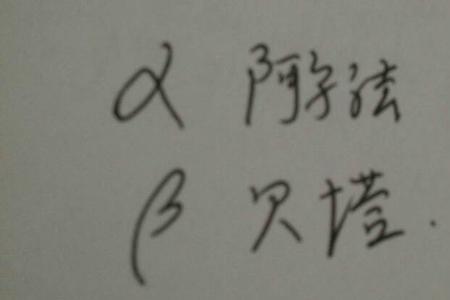 α 阿尔法
β 贝塔.